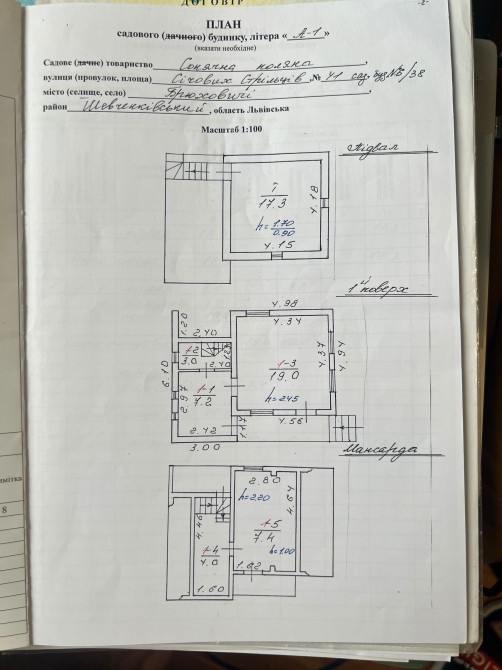 ДОГОВІР
-2-
ПЛАН
садового (дачного) будинку, літера « А-1 »
(вказати необхідне)
Садове (дачне) товариство Сонячна поляна,
вулиця (провулок, площа) Січових Стрільців, № 41 сад. буд №
місто (селище, село) Брюховичі
район Шевченківський, область Львівська
Масштаб 1:100
Підвал
I
17.3
4.18
h= 1.70
0.90
4.15
1й поверх
4.98
4.34
1.20
2.40
1-2
3.0
2.40
6.10
1-3
19.0
4.37
4.94
1-1
7.2
2.97
h=2.45
2.42
4.56
3.00
Мансарда
2.80
h=2.20
4.64
4.46
1-5
7.4
1-4
4.0
h=1.00
1.62
1.60
имітка
8